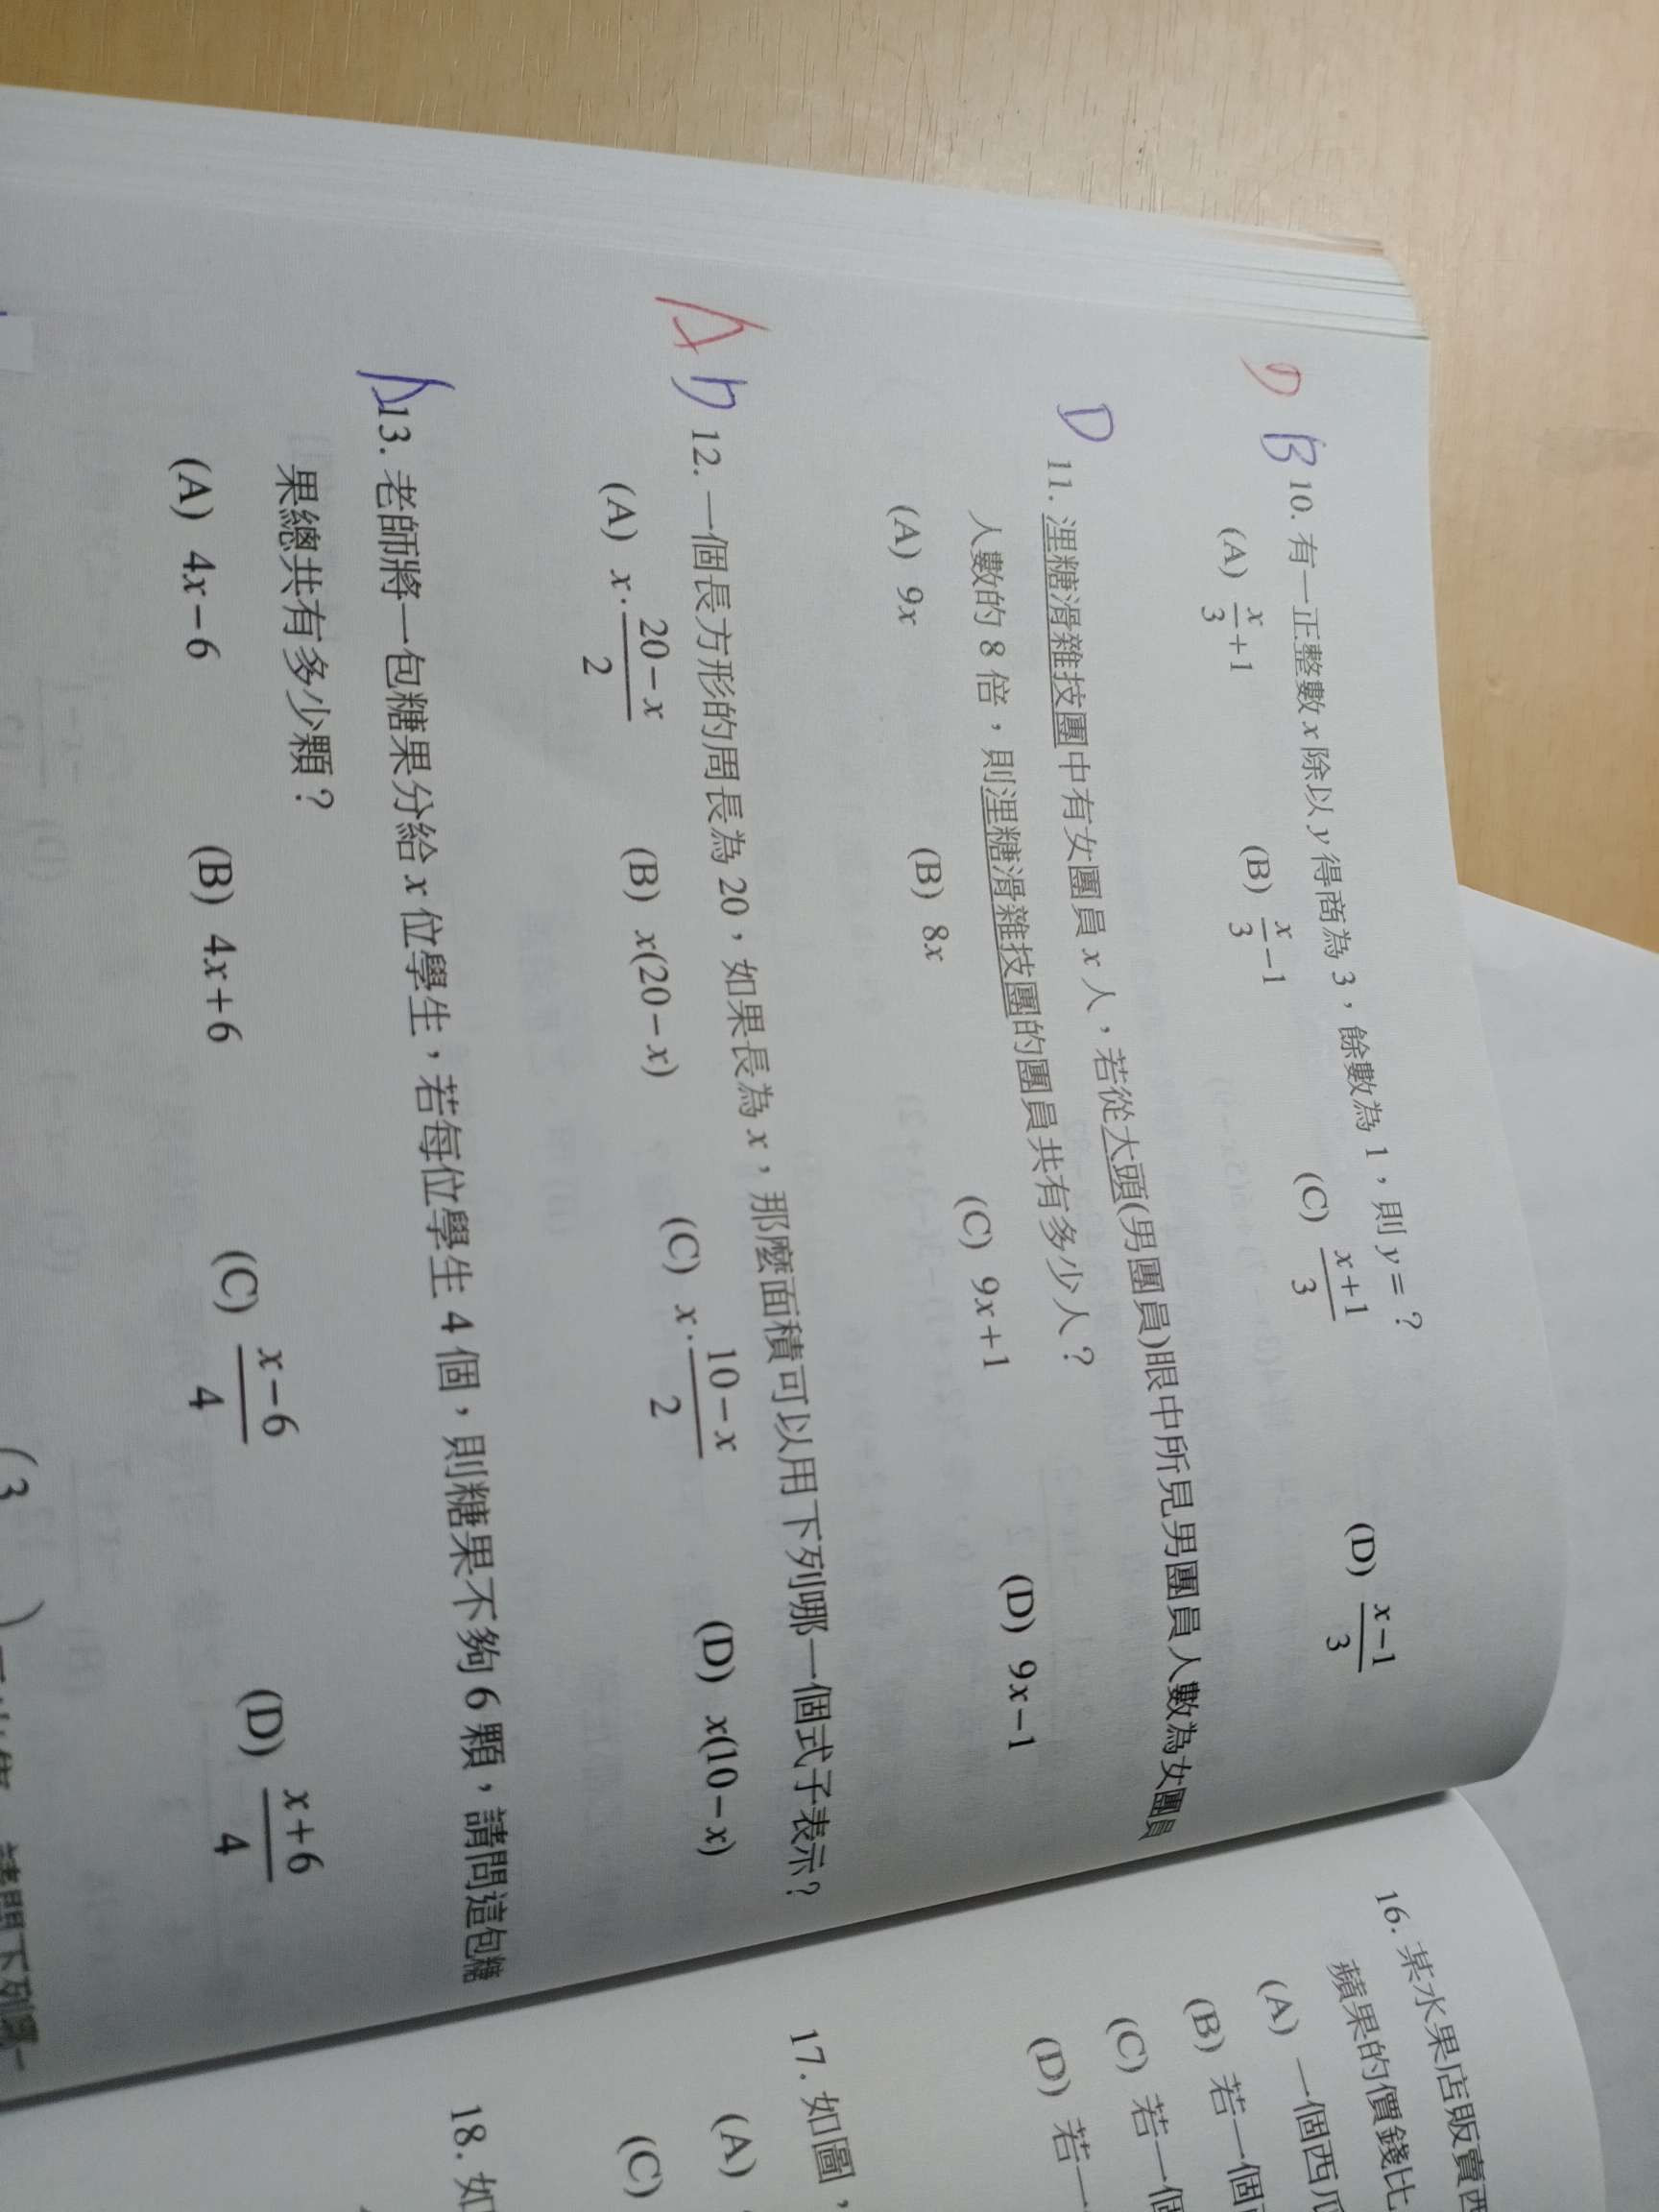 D B 10. 有一正整數 x 除以 y 得商為 3，餘數為 1，則 y = ?
(A) x/3+1 (B) x/3−1 (C) (x+1)/3 (D) (x−1)/3
D 11. 浬糖滑雜技團中有女團員 x 人，若從大頭(男團員)眼中所見男團員人數為女團員
人數的 8 倍，則浬糖滑雜技團的團員共有多少人？
(A) 9x (B) 8x (C) 9x+1 (D) 9x−1
A D 12. 一個長方形的周長為 20，如果長為 x，那麼面積可以用下列哪一個式子表示？
(A) x·(20−x)/2 (B) x(20−x) (C) x·(10−x)/2 (D) x(10−x)
A 13. 老師將一包糖果分給 x 位學生，若每位學生 4 個，則糖果不夠 6 顆，請問這包糖
果總共有多少顆？
(A) 4x−6 (B) 4x+6 (C) (x−6)/4 (D) (x+6)/4
16. 某水果店販賣西
蘋果的價錢比
(A) 一個西瓜
(B) 若一個
(C) 若一個
(D) 若一
17. 如圖，
(A)
(C)
18. 如